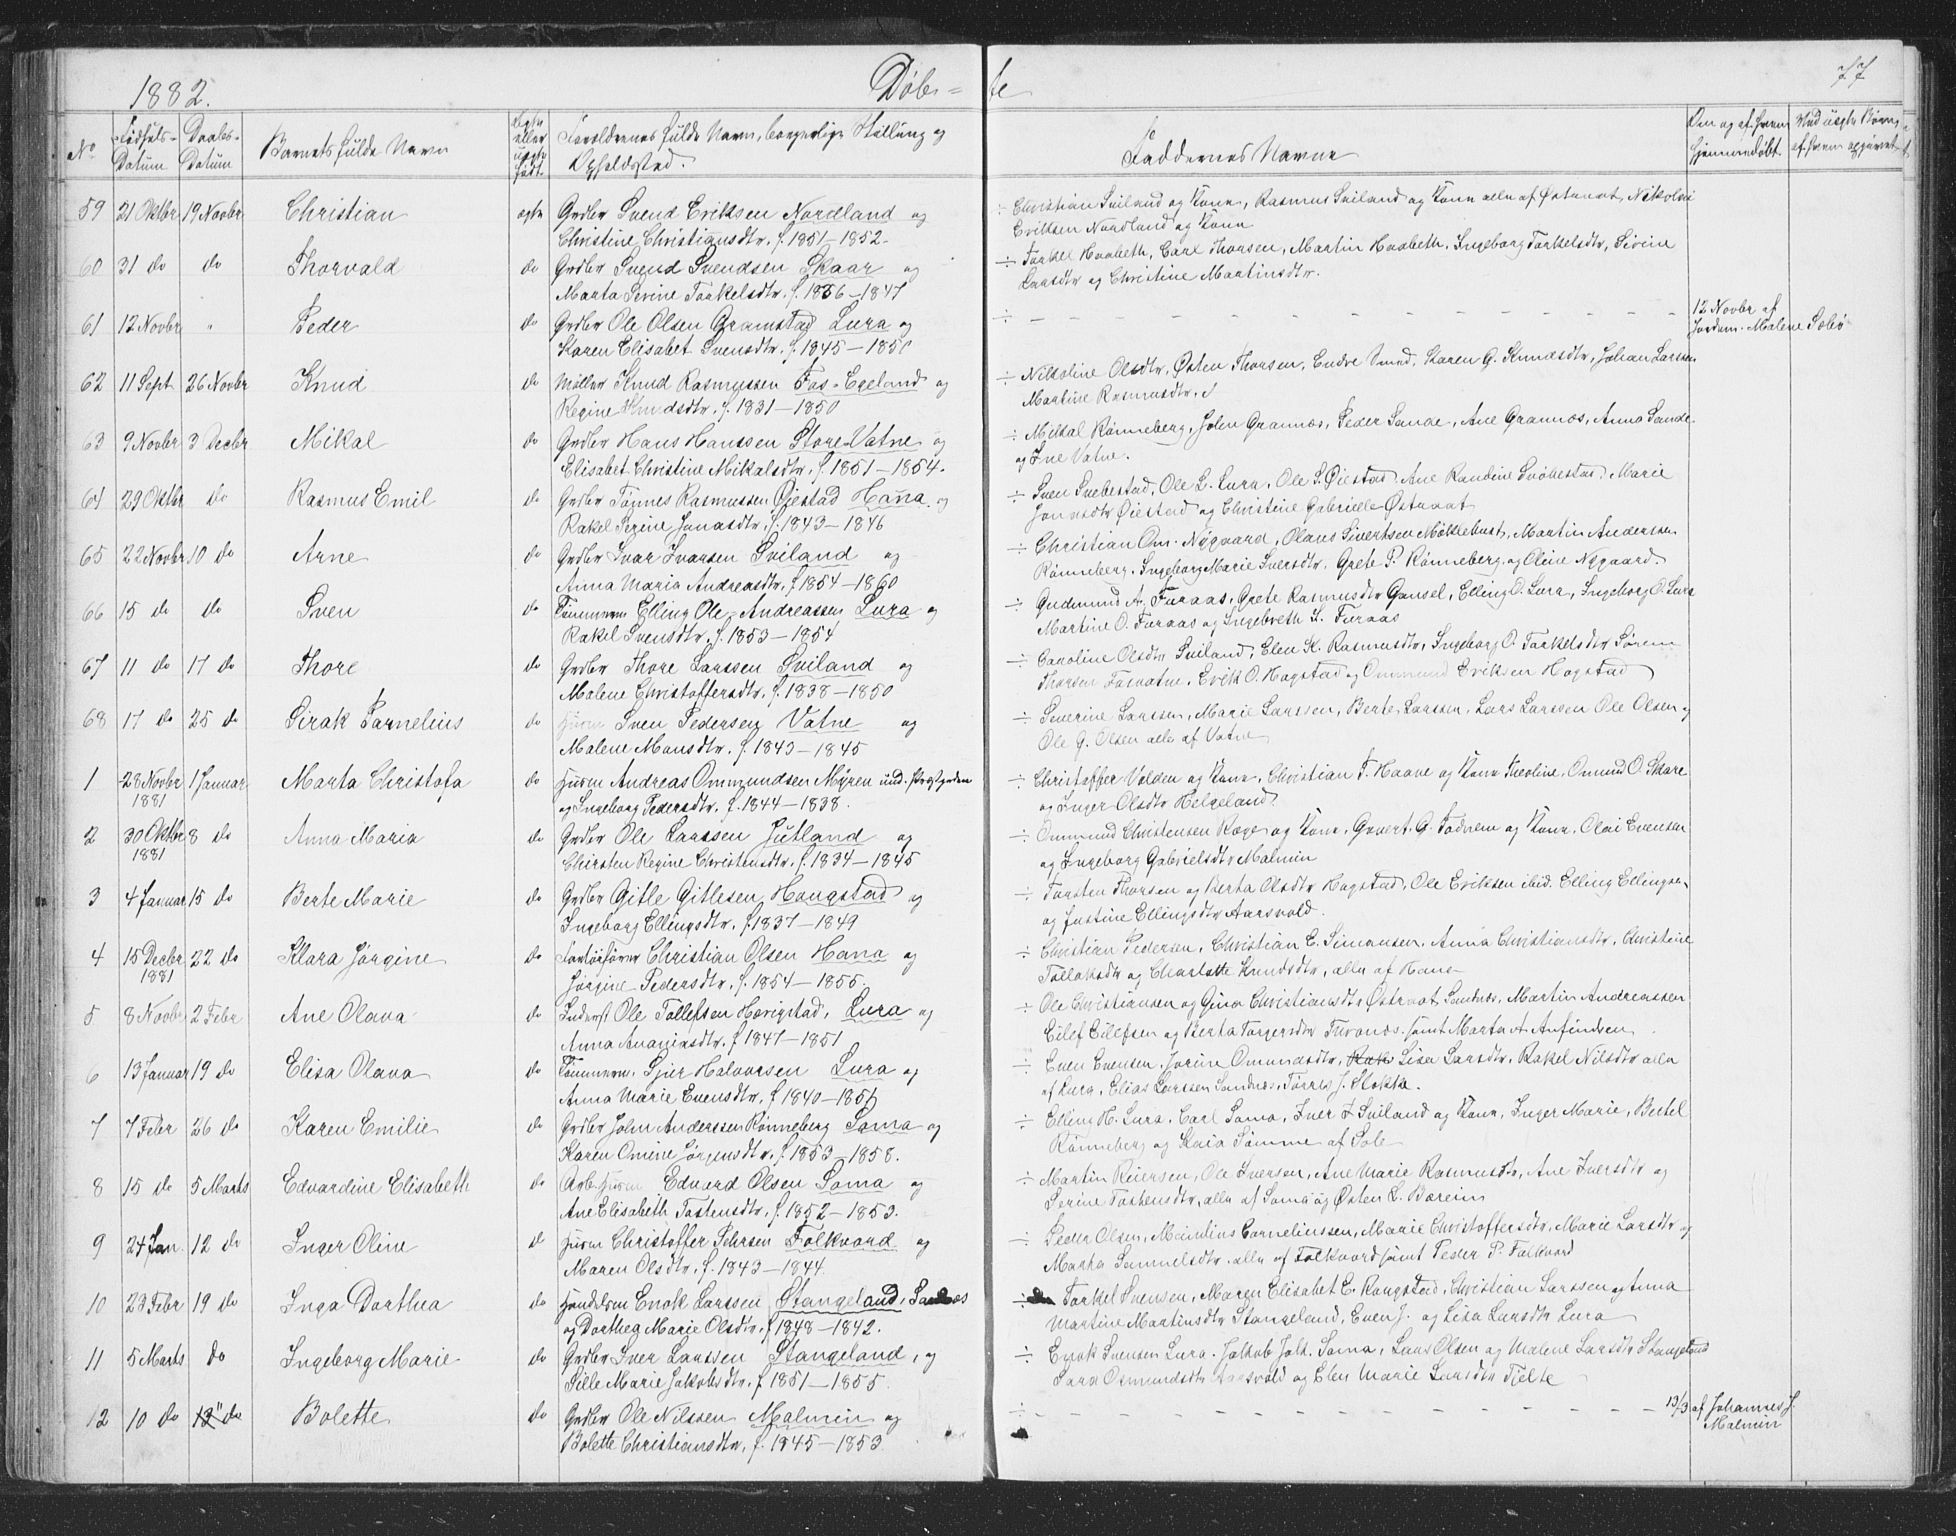 1882. Døbte 77
No Fødsels-Datum Daabs-Datum Barnets fulde Navn Ægte eller uægte født Forældrenes fulde Navn, borgerlige Stilling og Opholdssted. Faddernes Navne
59 21 Oktbr 19 Novbr Christian ægte Grdbr Svend Eriksen Nordland og
Christine Christiansdtr. f. 1851-1852.
÷ Christian Sviland og Kone, Rasmus Sviland og Kone alle af Østraat, Nikolai
Eriksen Nordland og Kone
60 31 do do Thorvald do Grdbr Svend Svendsen Skaar og
Marta Serine Torkelsdtr. f. 1856-1847
÷ Torkel Hoabeth, Carl Thorsen, Martin Hoabeth, Ingeborg Torkelsdtr, Sirine
Larsdtr og Christine Martinsdtr.
61 12 Novbr " Peder do Grdbr Ole Olsen Gramstad Lura og
Karen Elisabet Svensdtr. f. 1845-1850
÷ 12 Novbr af
Jordem. Malene Sæbø
62 11 Sept 26 Novbr Knud do Møller Knud Rasmussen Fos-Egeland og
Regine Knudsdtr. f. 1831-1850
÷ Nikoline Olsdtr, Østen Thorsen, Endre Smed, Karen G. Knudsdtr, Johan Larsen
Martine Rasmusdtr.
63 9 Novbr 3 Decbr Mikal do Grdbr Hans Hanssen Store-Vatne og
Elisabet Christine Mikalsdtr. f. 1851-1854.
÷ Mikal Rønneberg, John Grannæs, Peder Sande, Ane Grannæs, Anna Sande
og Vatne.
64 29 Oktbr do Rasmus Emil do Grdbr Tønnes Rasmussen Øiestad Hana og
Rakel Serine Jonasdtr. f. 1843-1846
÷ Sven Svebestad, Ole L. Lura, Ole S. Øiestad, Ane Randine Svebestad, Marie
Jonasdtr Øiestad og Christine Gabrielle Østraat
65 22 Novbr 10 do Arne do Grdbr Ivar Ivarsen Sviland og
Anna Maria Andreasdtr. f. 1854-1860
÷ Christian Om. Nygaard, Olaus Sivertsen Møklebust, Martin Anderssen
Rønneberg, Ingeborg Marie Iversdtr, Grete P. Rønneberg og Oline Nygaard.
66 15 do do Sven do Tømmerm Elling Ole Andreassen Lura og
Rakel Svensdtr. f. 1853-1854
÷ Gudmund A. Furaas, Grete Rasmusdtr Gansel, Elling O. Lura, Ingeborg O. Lura
Martine O. Furaas og Ingebreth L. Furaas
67 11 do 17 do Thore do Grdbr Thore Larssen Sviland og
Malene Christoffersdtr. f. 1838-1850
÷ Caroline Olsdtr Sviland, Elen K. Rasmusdtr, Ingeborg O. Torkelsdtr, Søren
Thorsen Fosvatne, Erik O. Hogstad og Ommund Eriksen Hogstad
68 17 do 25 do Sirak Parnelius do Husm Sven Pedersen Vatne og
Malene Monsdtr. f. 1843-1845
÷ Severine Larssen, Marie Larssen, Berte Larssen, Lars Larssen Ole Olsen og
Ole G. Olsen alle af Vatne
1 28 Novbr 1881 1 Januar Marta Christofa do Husm Andreas Ommundsen Myren und. Prestgrden
og Ingeborg Pedersdtr. f. 1844-1838.
÷ Christoffer Volden og Kone, Christian T. Haave og Kone, Ommund O. Skare
og Inger Olsdtr Helgeland
2 30 Oktbr 1881 8 do Anna Maria do Grdbr Ole Larssen Jutland og
Chirsten Regine Christensdtr. f. 1834-1845
÷ Ommund Christensen Rage og Kone, Govert G. Fodnem og Kone, Olai Evensen
og Ingeborg Gabrielsdtr Malmin
3 4 Januar 15 do Berte Marie do Grdbr Gitle Gitlesen Hougstad og
Ingeborg Ellingsdtr. f. 1837-1849
÷ Torsten Thorsen og Berta Olsdtr Hogstad, Ole Eriksen ibid. Elling Ellingsen
og Justine Ellingsdtr Aarsvold.
4 15 Decbr 1881 22 do Klara Jørgine do Christian Olsen Hana og
Jørgine Pedersdtr. f. 1854-1855.
÷ Christian Pedersen, Christian E. Simonsen, Anna Christiansdtr, Christine
Tollaksdtr og Charlotte Knudsdtr, alle af Hane
5 8 Novbr 2 Febr Ane Olava do Inderst Ole Tollefsen Hovigstad, Lura og
Anna Ananiasdtr. f 1847-1851
÷ Ole Christiansen og Gina Christiansdtr Østraat Sandnæs, Martin Andreassen
Eilef Eilefsen og Berta Torgersdtr Furenæs, samt Marta A. Anfindsen
6 13 Januar 19 do Elisa Olava do Tømmerm. Sjur Halvorsen Lura og
Anna Marie Evensdtr. f 1840-1856
÷ Even Evensen, Jorine Omundsdtr, Lisa Larsdtr, Rakel Nilsdtr alle
af Lura, Elias Larssen Sandnes, Tørres J. Slokke.
7 7 Febr 26 do Karen Emilie do Grdbr John Anderssen Rønneberg Soma og
Karen Omine Jørgensdtr. f. 1853-1858.
÷ Elling H. Lura, Carl Soma, Iver I Sviland og Kone, Inger Marie, Bertel
Rønneberg og Kaia Sømme af Sole
8 15 do 5 Marts Edvardine Elisabeth do Arb. Husm Edvard Olsen Soma og
Ane Elisabeth Tostensdtr. f. 1852-1853.
÷ Martin Reiersen, Ole Iversen, Ane Marie Rasmusdtr, Ane Iversdtr og
Serine Tostensdtr, alle af Soma og Østen L. Bæreim
9 24 Jan 12 do Inger Oline d Husm Christoffer Pehrsen Folkvord og
Maren Olsdtr. f. 1843-1844
÷ Peder Olsen, Mandius Cornelinssen, Marie Christoffersdtr, Marie Larsdtr og
Marta Samuelsdtr. alle af Folkvord samt Peder P. Folkvord
10 23 Febr 19 do Inga Dorthea do Handelsm Enok Larssen Stangeland, Sandnæs
og Dorthea Marie Olsdtr. f 1848-1842.
÷ Torkel Svensen, Maren Elisabet E. Rongstad, Christian Larssen og Anna
Martine Martinsdtr Stangeland, Even J. og Lisa Larsdtr Lura
11 5 Marts do Ingeborg Marie do Grdbr Iver Larssen Stangeland, og
Sille Marie Jakobsdtr. f 1851-1855.
÷ Enok Svensen Lura, Jakob Jak. Soma, Lars Olsen og Malene Larsdtr Stangeland
Sara Osmundsdtr Aarsvold og Elen Marie Larsdtr Tjelte
12 10 do 12" do Bolette do Grdbr Ole Nilssen Malmin og
Bolette Christiansdtr. f. 1845-1853
÷ 13/3 af Johannes J.
Malmin